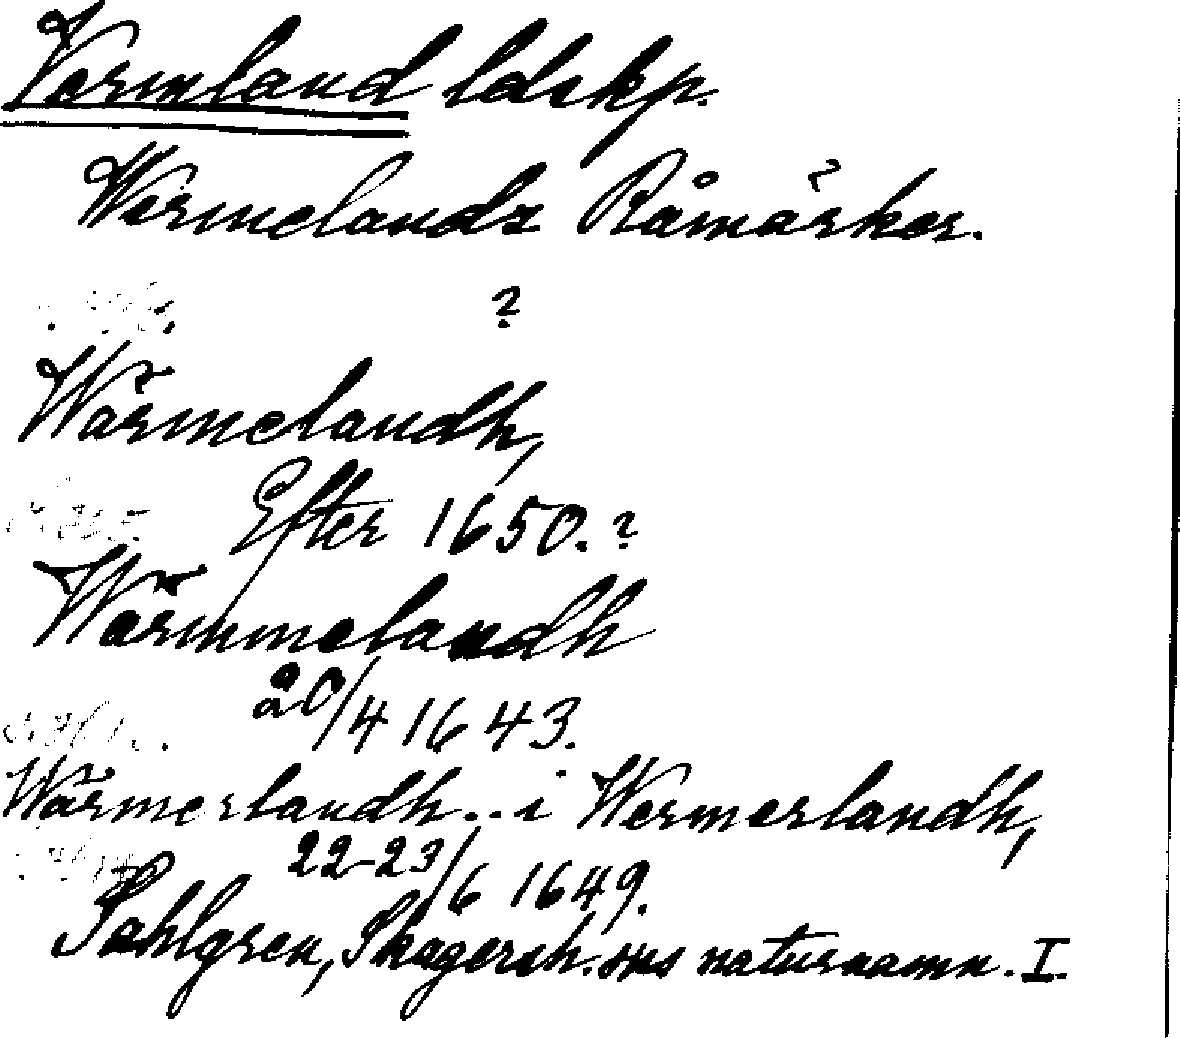 Vermland ldskp.
Wermelands Råmärker.
?
Wärmelandh,
Efter 1650.?
Wärmmelandh
20/4 1643.
Wärmerlandh... i Wermerlandh,
22-23/6 1649.
Sahlgren, Skagersh. sns naturnamn. I.